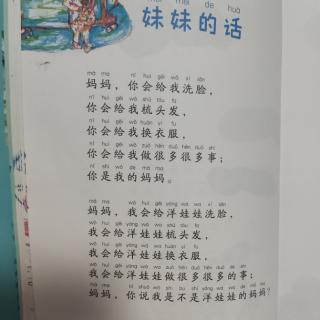 mèi mei de huà
妹妹的话
mā ma nǐ huì gěi wǒ xǐ liǎn
妈妈，你会给我洗脸，
nǐ huì gěi wǒ shū tóu fa
你会给我梳头发，
nǐ huì gěi wǒ huàn yī fu
你会给我换衣服，
nǐ huì gěi wǒ zuò hěn duō hěn duō shì
你会给我做很多很多事；
nǐ shì wǒ de mā ma
你是我的妈妈。
mā ma wǒ huì gěi yáng wá wa xǐ liǎn
妈妈，我会给洋娃娃洗脸，
wǒ huì gěi yáng wá wa shū tóu fa
我会给洋娃娃梳头发，
wǒ huì gěi yáng wá wa huàn yī fu
我会给洋娃娃换衣服，
wǒ huì gěi yáng wá wa zuò hěn duō hěn duō de shì
我会给洋娃娃做很多很多的事；
mā ma nǐ shuō wǒ shì bu shì yáng wá wa de mā ma
妈妈，你说我是不是洋娃娃的妈妈？